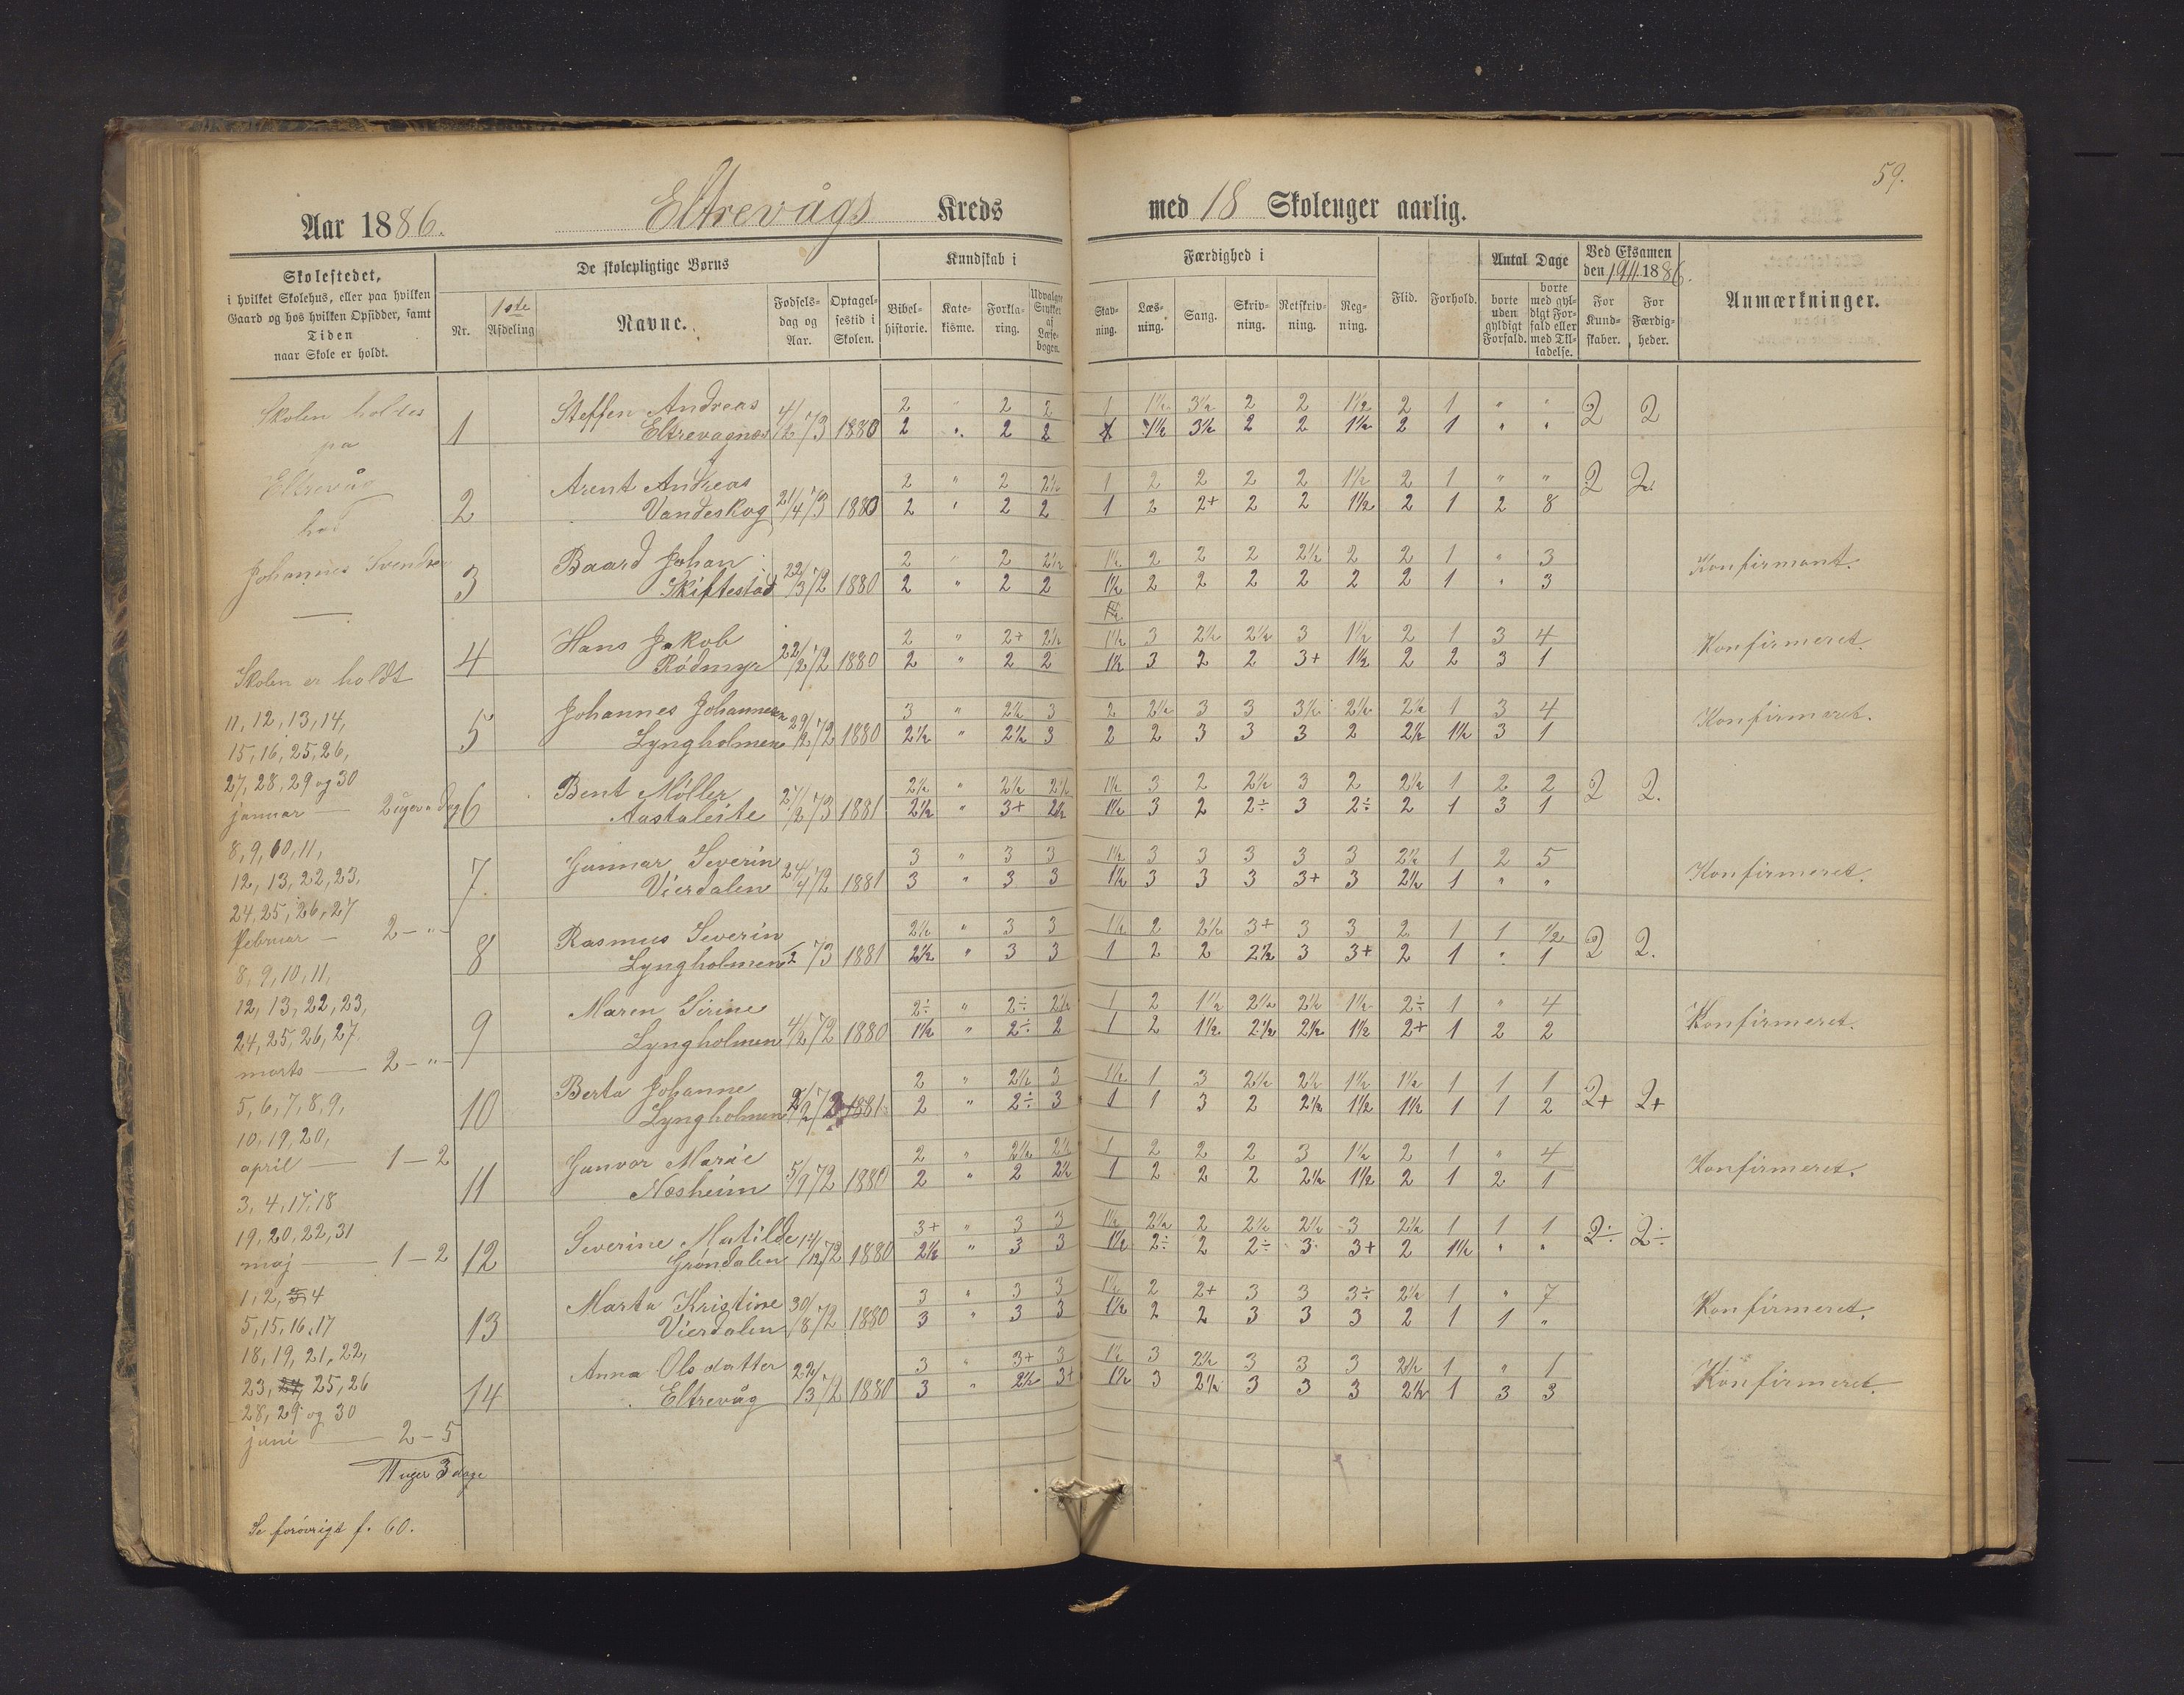 59.
Aar 1886. Eltrevågs Kreds med 18 Skoleuger aarlig.
Skolestedet,
i hvilket Skolehus, eller paa hvilken
Gaard og hos hvilken Opsidder, samt
Tiden
naar Skole er holdt.
De skolepligtige Børns
Nr.
1ste
Afdeling
Navne.
Fødsels-
dag og
Aar.
Optagel-
sestid i
Skolen.
Kundskab i
Bibel-
historie.
Kate-
kisme.
Forkla-
ring.
Udvalgte
Stykker
af
Læse-
bogen.
Færdighed i
Stav-
ning.
Læs-
ning.
Sang.
Skriv-
ning.
Retskriv-
ning.
Reg-
ning.
Flid.
Forhold.
Antal Dage
borte
uden
gyldigt
Forfald.
borte
med gyl-
digt For-
fald eller
med Til-
ladelse.
Ved Eksamen
den 19/11 1886.
For
Kund-
skaber.
For
Færdig-
heder.
Anmærkninger.
Skolen holdes
på
Eltrevåg
hos
Johannes Svendsen
Skolen er holdt
11, 12, 13, 14,
15, 16, 25, 26,
27, 28, 29 og 30
januar — 2 uger " dag
8, 9, 10, 11,
12, 13, 22, 23,
24, 25, 26, 27
februar — 2 - " -
8, 9, 10, 11,
12, 13, 22, 23,
24, 25, 26, 27
marts — 2 - " -
5, 6, 7, 8, 9,
10, 19, 20,
april — 1 - 2
3, 4, 17, 18
19, 20, 22, 31
maj — 1 - 2
1, 2, 3, 4
5, 15, 16, 17
18, 19, 21, 22,
23, 24, 25, 26
28, 29 og 30
juni — 2 - 5
11 uger 3 dage
Se forøvrigt f. 60.
1 Steffen Andreas
Eltrevagnæs 4/12 73 1880
2 " 2 2 1 1½ 3½ 2 2 1½ 2 1 " " 2 2
2 " 2 2 1 1½ 3½ 2 2 1½ 2 1 " "
2 Arent Andreas
Vandeskog 21/4 73 1880
2 " 2 2½ 1 2 2 2 2 1½ 2 1 " " 2 2
2 " 2 2 1 2 2+ 2 2 1½ 2 1 2 8
3 Baard Johan
Skiftestad 22/3 72 1880
2 " 2 2½ 1½ 2 2 2 2½ 2 2 1 " 3 Konfirmant.
2 " 2 2 1½ 2 2 2 2 2 2 1 " 3
4 Hans Jakob
Rödmyr 22/2 72 1880
2 " 2+ 2½ 1½ 3 2½ 2½ 3 1½ 2 1 3 4 Konfirmeret.
2 " 2 2 1½ 3 2 2 3+ 1½ 2 2 3 1
5 Johannes Johannesen
Lyngholmen 29/2 72 1880
3 " 2½ 3 2 2½ 3 3 3½ 2½ 2½ 1 3 4 Konfirmeret.
2½ " 2½ 3 2 2 3 3 3 2 2½ 1½ 3 1
6 Bent Möller
Aastaleite 27/2 73 1881
2½ " 2½ 2½ 1½ 3 2 2½ 3 2 2½ 1 2 2 2 2.
2½ " 3+ 2½ 1½ 3 2 2÷ 3 2÷ 2 1 3 1
7 Gunnar Severin
Vierdalen 24/4 72 1881
3 " 3 3 1½ 3 3 3 3 3 2½ 1 2 5 Konfirmeret.
3 " 3 3 1½ 3 3 3 3+ 3 2½ 1 " "
8 Rasmus Severin
Lyngholmen 73 1881
2½ " 3 3 1½ 2 2½ 3+ 3 3 2 1 1 ½ 2 2.
2½ " 3 3 1 2 2 2½ 3 3+ 2 1 " 1
9 Maren Sirine
Lyngholmen 4/2 72 1880
2÷ " 2÷ 2½ 1 2 1½ 2½ 2½ 1½ 2÷ 1 " 4 Konfirmeret.
1½ " 2÷ 2 1 2 1½ 2½ 2½ 1½ 2+ 1 2 2
10 Berta Johanne
Lyngholmen 1881
2 " 2½ 3 1½ 1 3 2½ 2½ 1½ 1½ 1 1 1 2+ 2+
2 " 2÷ 3 1 1 3 2 2½ 1½ 1½ 1 1 2
11 Gunvor Marie
Næsheim 5/9 72 1880
2 " 2½ 2½ 1 2 2 2 3 1½ 2 1 " 4 Konfirmeret.
2 " 2 2½ 1 2 2 2 2½ 1½ 2 1 2 1
12 Severine Matilde
Gröndalen 14/12 72 1880
3+ " 3 3 1½ 2½ 2 2½ 2½ 3 2½ 1 1 1 2÷ 2÷
2½ " 3 3 1½ 2÷ 2 2÷ 3 3+ 2 1½ " "
13 Marta Kristine
Vierdalen 30/8 72 1880
3 " 3 3 1½ 2 2+ 3 3 3÷ 2½ 1 " 7 Konfirmeret.
3 " 3 3 1½ 2 2 3 3 3 2 1 1 "
14 Anna Olsdatter
Eltrevåg 22/3 72 1880
3 " 3+ 3 1½ 3 2½ 3 3 3 2½ 1 " 1 Konfirmeret.
3 " 2½ 3+ 1½ 3 2½ 3 3 3 2½ 1 3 3